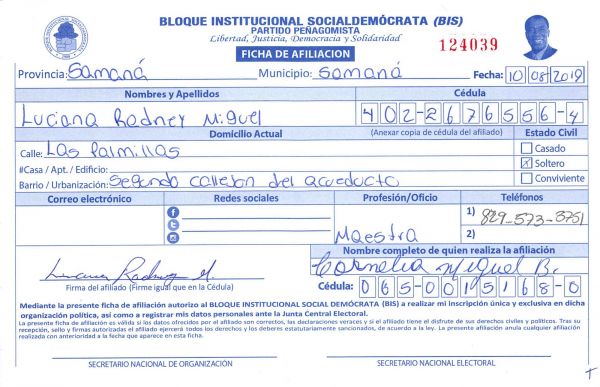 BLOQUE INSTITUCIONAL SOCIALDEMÓCRATA (BIS)
PARTIDO PEÑAGOMISTA
Libertad, Justicia, Democracia y Solidaridad
FICHA DE AFILIACION
124039
Provincia: Samaná Municipio: Samaná Fecha: 10/08/2019
Nombres y Apellidos Cédula
Luciana Radney Miguel 402-2676556-4
Domicilio Actual (Anexar copia de cédula del afiliado) Estado Civil
Calle: Las Palmillas Casado
#Casa / Apt. / Edificio: X Soltero
Barrio / Urbanización: Segundo callejon del acueducto Conviviente
Correo electrónico Redes sociales Profesión/Oficio Teléfonos
1) 829-573-3751
Maestra 2)
Nombre completo de quien realiza la afiliación
Cornelia Miguel B.
Luciana Radney M.
Firma del afiliado (Firme igual que en la Cédula) Cédula: 065-0019516-8-0
Mediante la presente ficha de afiliación autorizo al BLOQUE INSTITUCIONAL SOCIAL DEMÓCRATA (BIS) a realizar mi inscripción única y exclusiva en dicha
organización política, así como a registrar mis datos personales ante la Junta Central Electoral.
La presente ficha de afiliación es válida si los datos ofrecidos por el afiliado son correctos, las declaraciones veraces y si el afiliado tiene el disfrute de sus derechos civiles y políticos. Tras su
recepción, sello y firmas autorizadas el afiliado ejercerá todos los derechos y los deberes estatutariamente sancionados, de acuerdo a la ley. La presente afiliación anula cualquier afiliación
realizada con anterioridad a la fecha que aparece en esta ficha.
SECRETARIO NACIONAL DE ORGANIZACIÓN SECRETARIO NACIONAL ELECTORAL